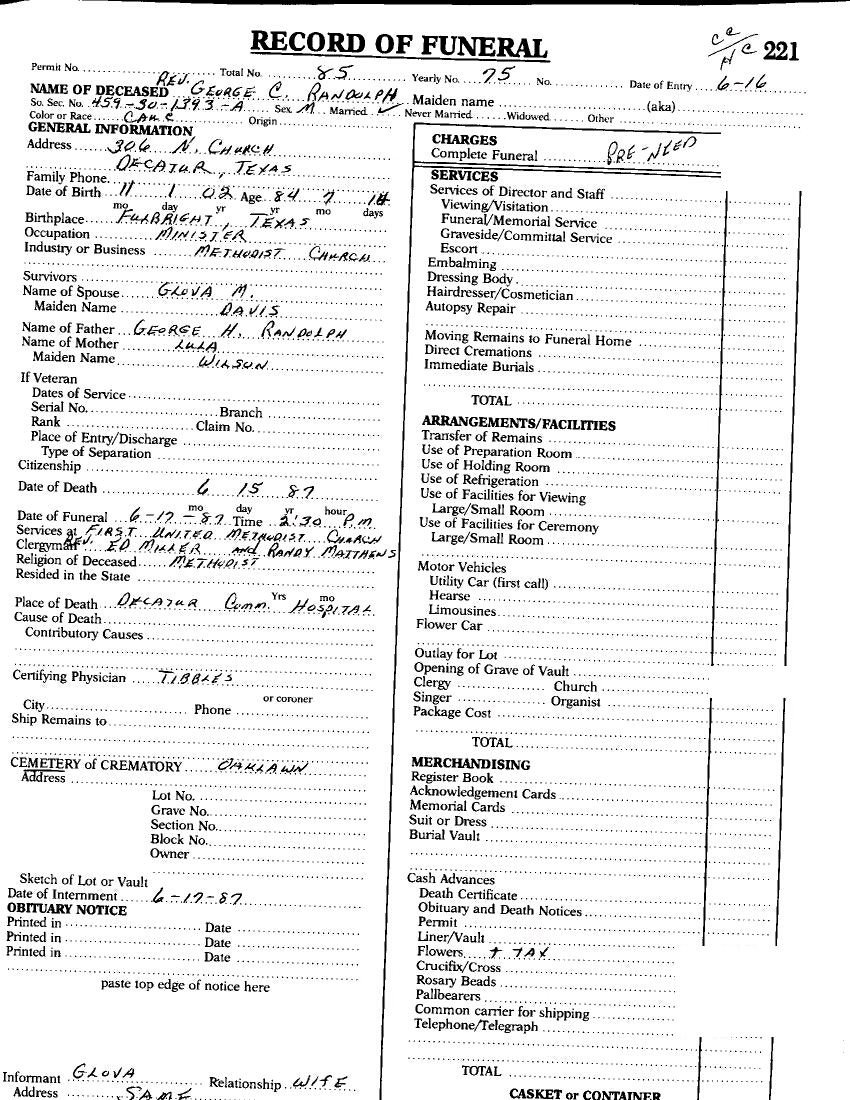 RECORD OF FUNERAL
cc
NC 221
Permit No. Total No. 85 Yearly No. 75 No. Date of Entry 6-16
NAME OF DECEASED REV. GEORGE C. RANDOLPH Maiden name (aka)
So. Sec. No. 459-30-1393-A Sex M Married ✓ Never Married Widowed Other
Color or Race CAUC Origin
GENERAL INFORMATION
Address 306 N. CHURCH
DECATUR, TEXAS
Family Phone
Date of Birth 11 1 02 Age 84 7 14
mo day yr yr mo days
Birthplace FULBRIGHT, TEXAS
Occupation MINISTER
Industry or Business METHODIST CHURCH
Survivors
Name of Spouse GLOVA M.
Maiden Name DAVIS
Name of Father GEORGE H. RANDOLPH
Name of Mother LULA
Maiden Name WILSON
If Veteran
Dates of Service
Serial No. Branch
Rank Claim No.
Place of Entry/Discharge
Type of Separation
Citizenship
Date of Death 6 15 87
mo day yr hour
Date of Funeral 6-17-87 Time 2:30 P.M
Services at FIRST UNITED METHODIST CHURCH
Clergyman REV. ED MILLER AND RANDY MATTHEWS
Religion of Deceased METHODIST
Resided in the State
Yrs mo
Place of Death DECATUR COMM. HOSPITAL
Cause of Death
Contributory Causes
Certifying Physician TIBBLES
or coroner
City Phone
Ship Remains to
CEMETERY of CREMATORY OAKLAWN
Address
Lot No.
Grave No.
Section No.
Block No.
Owner
Sketch of Lot or Vault
Date of Internment 6-17-87
OBITUARY NOTICE
Printed in Date
Printed in Date
Printed in Date
paste top edge of notice here
Informant GLOVA Relationship WIFE
Address SAME
CHARGES
Complete Funeral PRE-NEED
SERVICES
Services of Director and Staff
Viewing/Visitation
Funeral/Memorial Service
Graveside/Committal Service
Escort
Embalming
Dressing Body
Hairdresser/Cosmetician
Autopsy Repair
Moving Remains to Funeral Home
Direct Cremations
Immediate Burials
TOTAL
ARRANGEMENTS/FACILITIES
Transfer of Remains
Use of Preparation Room
Use of Holding Room
Use of Refrigeration
Use of Facilities for Viewing
Large/Small Room
Use of Facilities for Ceremony
Large/Small Room
Motor Vehicles
Utility Car (first call)
Hearse
Limousines
Flower Car
Outlay for Lot
Opening of Grave of Vault
Clergy Church
Singer Organist
Package Cost
TOTAL
MERCHANDISING
Register Book
Acknowledgement Cards
Memorial Cards
Suit or Dress
Burial Vault
Cash Advances
Death Certificate
Obituary and Death Notices
Permit
Liner/Vault
Flowers + TAX
Crucifix/Cross
Rosary Beads
Pallbearers
Common carrier for shipping
Telephone/Telegraph
TOTAL
CASKET or CONTAINER